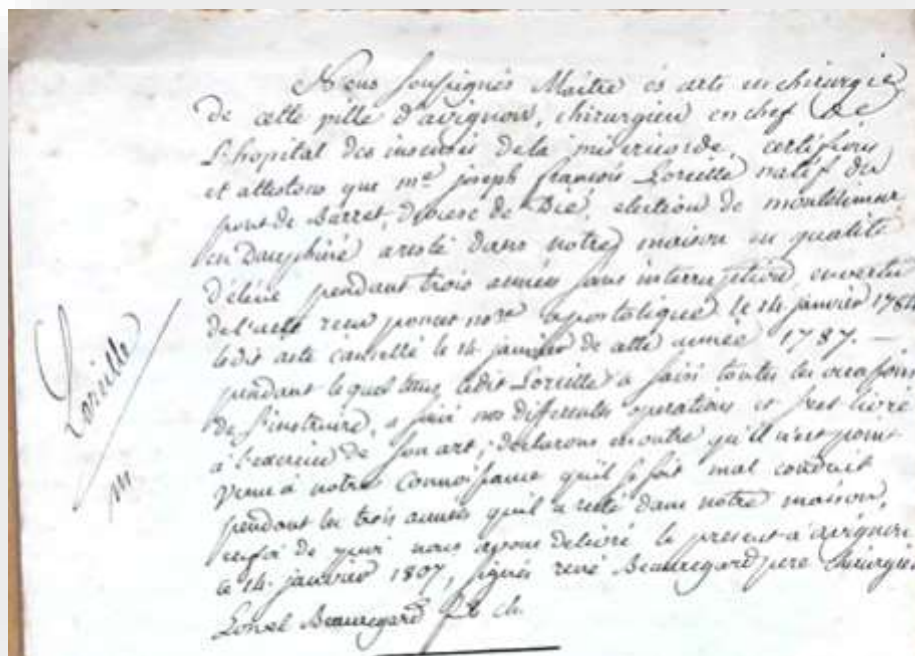 Nous soussignés Maître ès arts en chirurgie
de cette ville d'avignon, chirurgien en chef de
L'hopital des insensés dela miséricorde, certifions
et attestons que me joseph françois Loreille natif du
pont de Barret, diocese de Dié, election de montelimar
en Dauphiné a resté dans notre maison en qualité
d'élève pendant trois années sans interruption en vertu
de l'acte reçu poncet nore apostolique le 14 janvier 1784
ledit acte cancellé le 14 janvier de cette année 1787. —
pendant lequel tems ledit Loreille a saisi toutes les occasions
de s'instruire, a suivi nos differentes operations et s'est livré
à l'exercice de son art; declarons en outre qu'il n'est point
venu à notre connoissance qu'il se soit mal conduit
pendant les trois années qu'il a resté dans notre maison,
en foi de quoi nous avons delivré le present a avignon
le 14 janvier 1807, signés rené Beauregard pere chirurgien
Beauregard ch.
Loreille